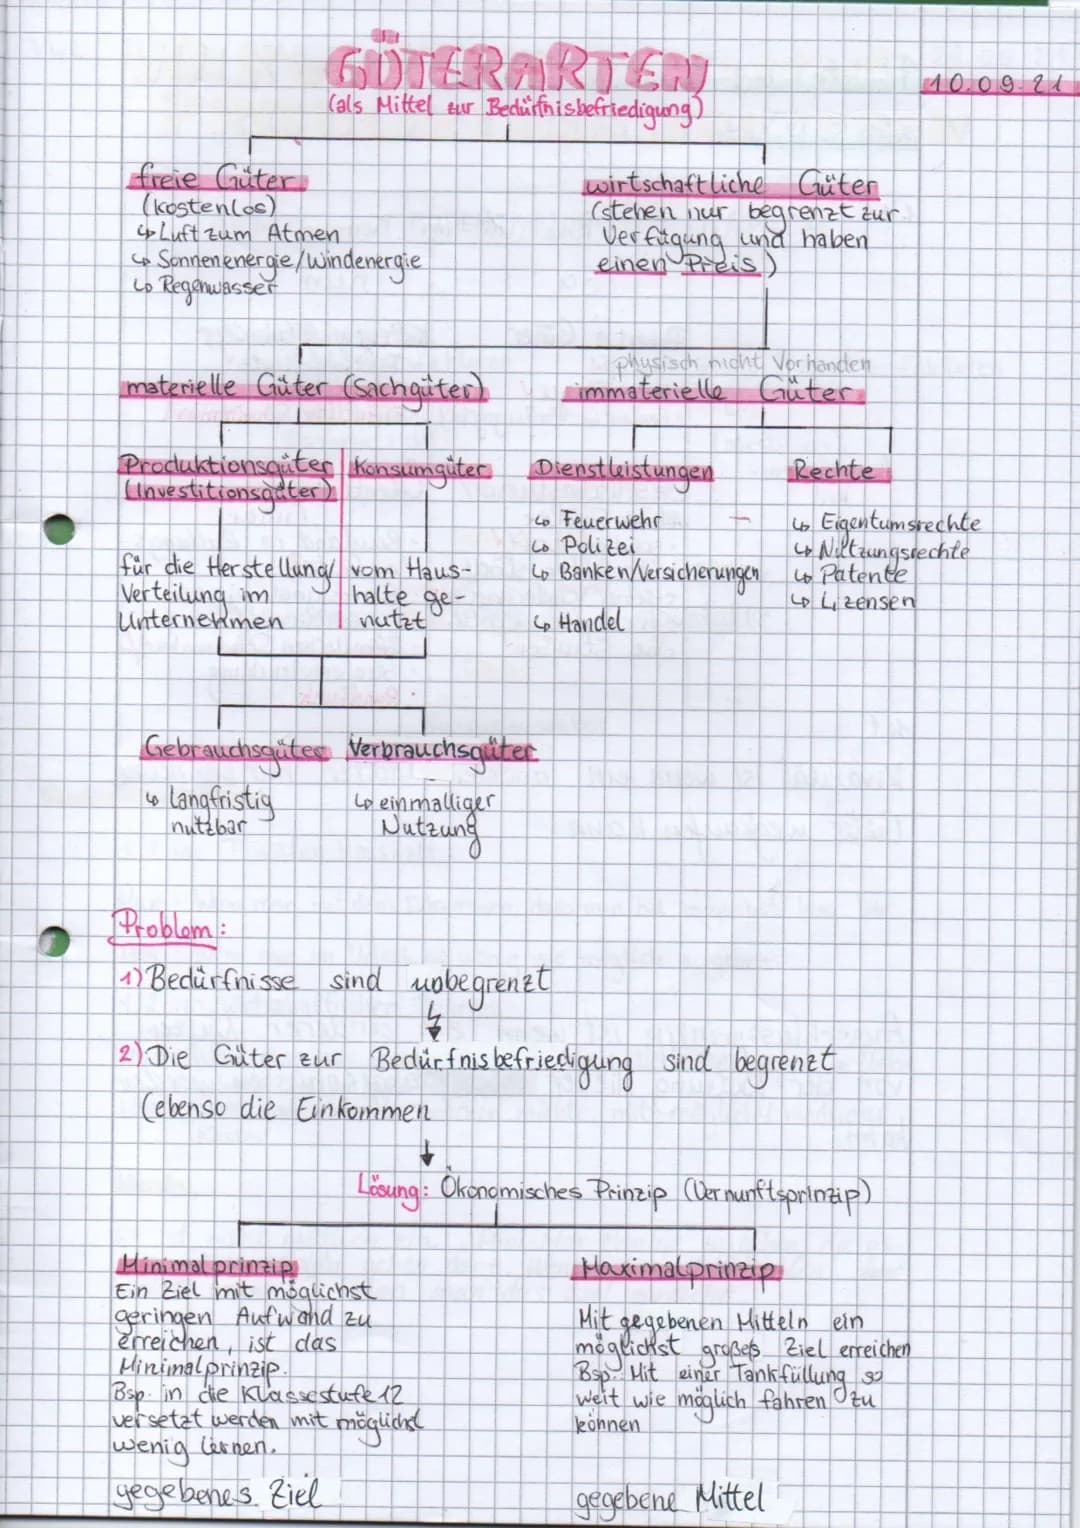 GÜTERARTEN
10.09.21
(als Mittel zur Bedürfnisbefriedigung)
freie Güter
(kostenlos)
↳ Luft zum Atmen
↳ Sonnenenergie/Windenergie
↳ Regenwasser
wirtschaftliche Güter
(stehen nur begrenzt zur
Verfügung und haben
einen Preis)
physisch nicht vorhanden
materielle Güter (Sachgüter)
immaterielle Güter
Produktionsgüter
(Investitionsgüter)
für die Herstellung/
Verteilung im
Unternehmen
Konsumgüter
vom Haus-
halte ge-
nutzt
Dienstleistungen
↳ Feuerwehr
↳ Polizei
↳ Banken/Versicherungen
↳ Handel
Rechte
↳ Eigentumsrechte
↳ Nutzungsrechte
↳ Patente
↳ Lizensen
Gebrauchsgüter
↳ langfristig
nutzbar
Verbrauchsgüter
↳ einmalliger
Nutzung
Problem:
1) Bedürfnisse sind unbegrenzt
2) Die Güter zur Bedürfnisbefriedigung sind begrenzt
(ebenso die Einkommen
Lösung: Ökonomisches Prinzip (Vernunftsprinzip)
Minimalprinzip
Ein Ziel mit möglichst
geringen Aufwand zu
erreichen, ist das
Minimalprinzip.
Bsp. in die Klassestufe 12
versetzt werden mit möglichst
wenig lernen.
gegebenes Ziel
Maximalprinzip
Mit gegebenen Mitteln ein
möglichst großes Ziel erreichen
Bsp. Mit einer Tankfüllung so
weit wie möglich fahren zu
können
gegebene Mittel